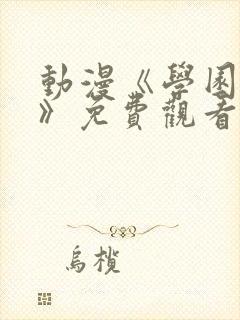 動漫《學園
》免費觀看
烏欖